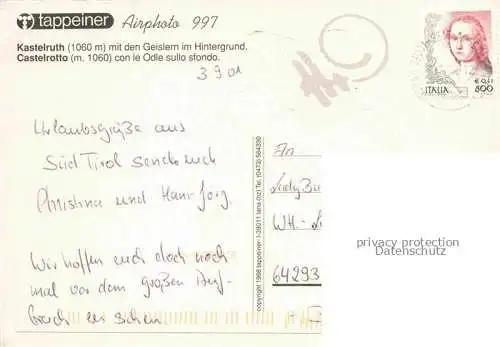 tappeiner Airphoto 997
Kastelruth (1060 m) mit den Geislern im Hintergrund.
Castelrotto (m. 1060) con le Odle sullo sfondo.
3 9 01
ITALIA 800
€ 0,41
Urlaubsgrüße aus
Süd Tirol senden euch
Christina und Hans-Jörg.
Wir hoffen euch doch noch
mal vor dem großen Auf-
bruch zu sehen
copyright 1998 tappeiner I-39011 lana (bz) Tel. (0473) 564330
An
WH.-
64293
privacy protection
Datenschutz